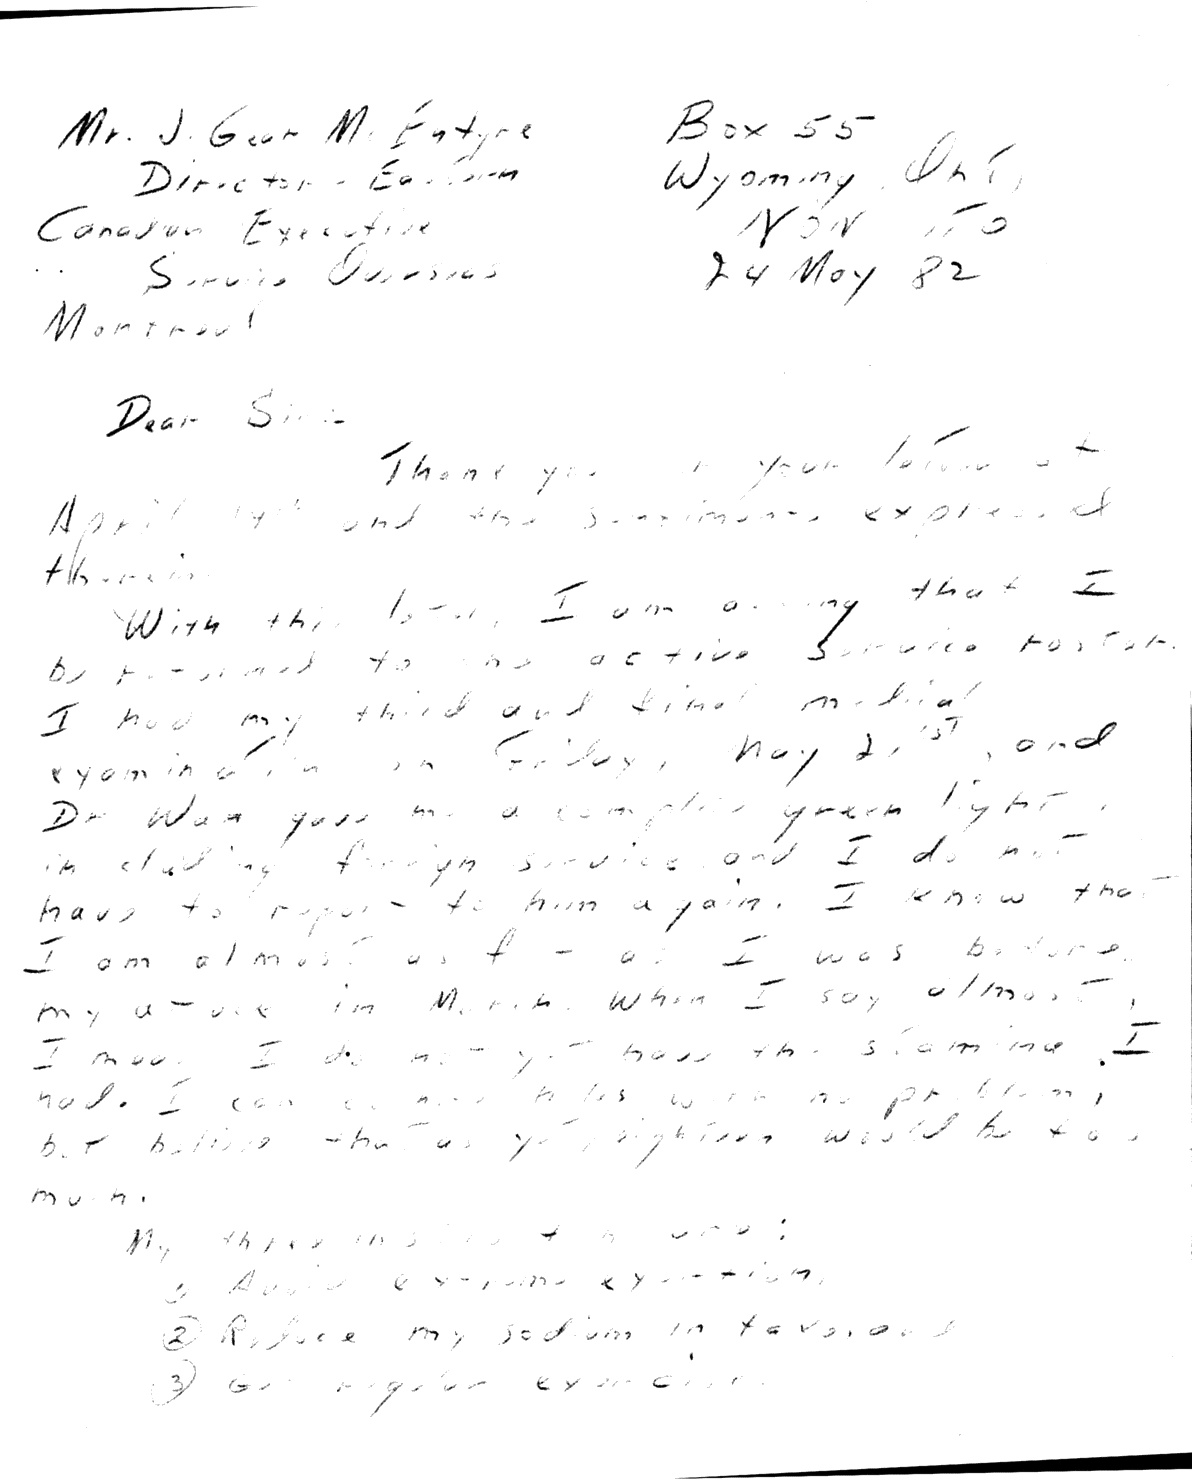 Mr. J. Gear McEntyre
Director - Eastern
Canadian Executive
Service Overseas
Montreal
Box 55
Wyoming, Ont,
N0N 1T0
24 May 82
Dear Sir:-
Thank you for your letter of
April 14th and the sentiments expressed
therein.
With this letter, I am asking that I
be returned to the active service roster.
I had my third and final medical
examination on Friday, May 21st, and
Dr Wan gave me a complete green light,
including foreign service and I do not
have to report to him again. I know that
I am almost as fit as I was before
my attack in March. When I say almost,
I mean I do not yet have the stamina I
had. I can do nine holes with no problem,
but believe that as yet eighteen would be too
much.
My three instructions are:
① Avoid extreme exertion,
② Reduce my sodium intake, and
③ Get regular exercise.